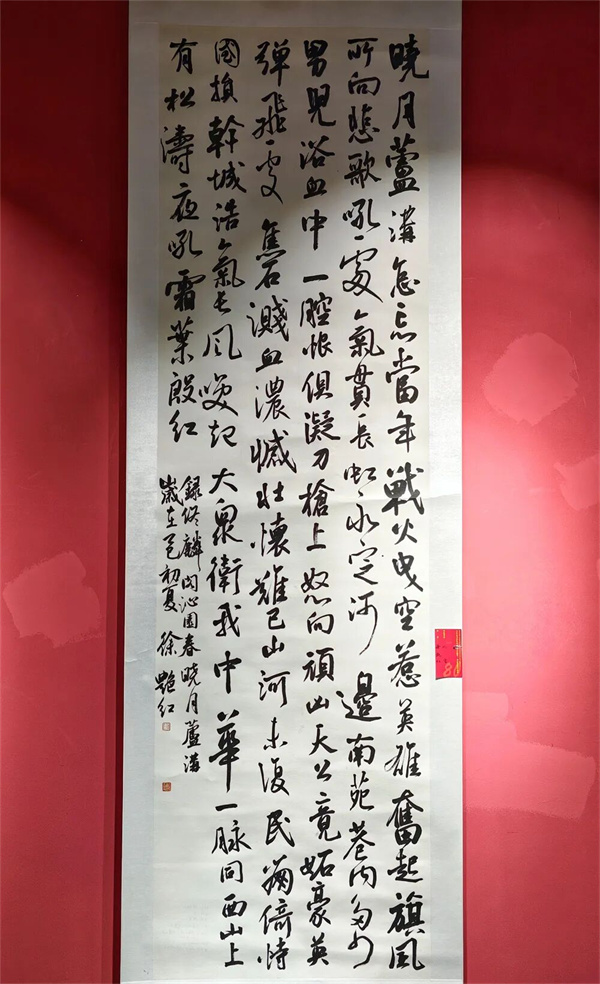 曉月蘆溝怎忘當年戰火曳空惹英雄奮起旗風
所向悲歌吼處氣貫長虹永定河邊南苑巷內多少
男兒浴血中一腔恨俱凝刀槍上怒向頑凶天公竟妬豪英
彈飛處焦石濺血濃憾壯懷難已山河未復民倚恃
國損幹城浩氣長風喚起大衆衛我中華一脉同西山上
有松濤夜吼霜葉殷紅
錄佟麟閣沁園春曉月蘆溝
歲在乙巳初夏徐艷红